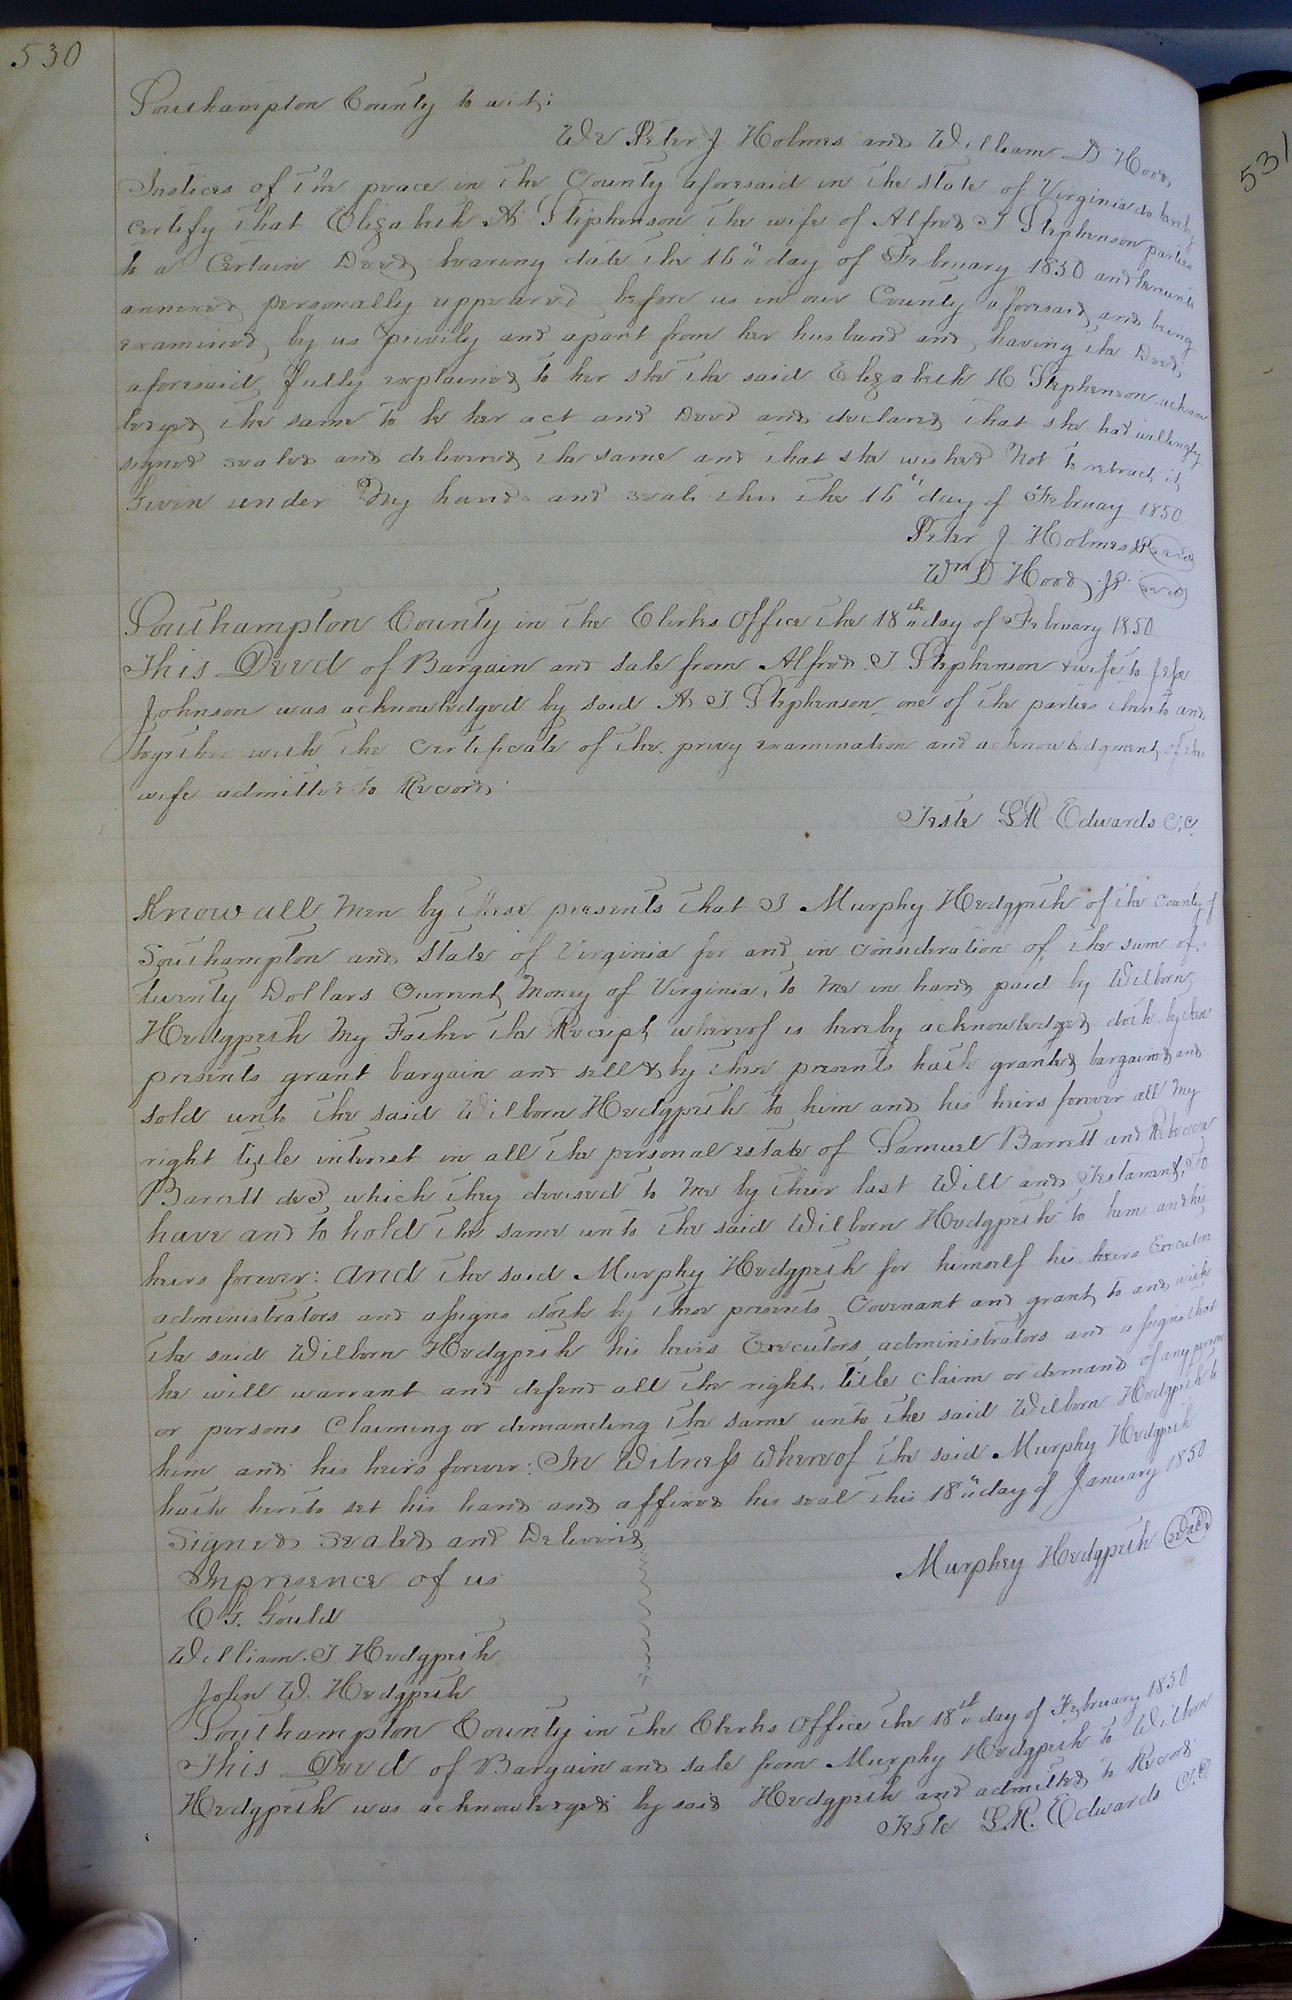 530
531
Southampton County to wit:
We Peter J Holmes and William D Hood,
Justices of the peace in the County aforesaid in the State of Virginia do hereby
certify that Elizabeth H Stephenson the wife of Alfred I Stephenson parties
to a Certain Deed, bearing date the 16" day of February 1850 and hereunto
annexed, personally appeared before us in our County aforesaid, and being
examined, by us privily and apart from her husband and, having the Deed,
aforesaid, fully explained, to her she the said Elizabeth H Stephenson acknow
ledged, the same to be her act and Deed and, declared, that she had willingly
signed sealed and delivered, the same and that she wished Not to retract it,
Given under My hand and seal this the 16" day of February 1850
Peter J Holmes JP seal
Wm D Hood, JP. seal
Southampton County in the Clerks Office the 18th day of February 1850
This Deed of Bargain and sale from Alfred I Stephenson & wife to Jesse
Johnson was acknowledged by said A I Stephenson one of the parties thereto and
together with the Certificate of the privy examination and acknowledgment, of the
wife admitted to Record,
Teste L R Edwards C,C,
Know all Men by these presents that I Murphy Hedgpeth of the County of
Southampton and State of Virginia for and, in consideration of, the sum of,
twenty Dollars Current, Money of Virginia, to Me in hand, paid by Wilborn
Hedgpeth My Father the Receipt, whereof is hereby acknowledged, doth by these
presents grant bargain and sell & by these presents hath granted, bargained and
sold unto the said Wilborn Hedgpeth to him and his heirs forever all My
right title interest in all the personal estate of Samuel Barrett and Rebecca
Barrett decd which they devised to Me by their last Will and Testament, To
have and to hold the same unto the said Wilborn Hedgpeth to him and his
heirs forever: And the said Murphy Hedgpeth for himself his heirs Executors
administrators and assigns doth by these presents, Covenant and grant, to and, with
the said Wilborn Hedgpeth his heirs Executors administrators and assigns that
he will warrant and defend all the right, title Claim or demand of any person
or persons Claiming or demanding the same unto the said Wilborn Hedgpeth to
him and his heirs forever: In Witness Whereof the said Murphy Hedgpeth
hath hereto set his hand and affixed his seal this 18" day of January 1850
Signed, Sealed, and Delivered,
In presence of us
C G. Gould
William. I Hedgpeth
John W. Hedgpeth
Murphey Hedgpeth seal
Southampton County in the Clerks Office the 18th day of February 1850
This Deed of Bargain and sale from Murphy Hedgpeth to Wilborn
Hedgpeth was acknowledged by said Hedgpeth and admitted, to Record.
Teste L. R. Edwards C.C.